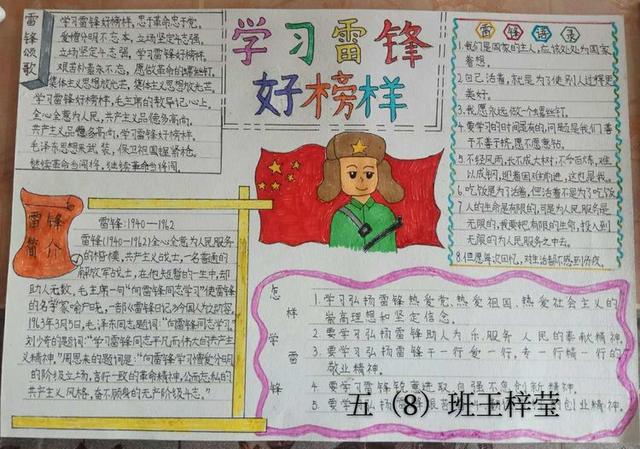 学习雷锋
好榜样
雷锋颂歌
学习雷锋好榜样，忠于革命忠于党，
爱憎分明不忘本，立场坚定斗志强，
立场坚定斗志强。学习雷锋好榜样，
艰苦朴素永不忘，愿做革命的螺丝钉，
集体主义思想放光芒，集体主义思想放光芒。
学习雷锋好榜样，毛主席的教导记心上，
全心全意为人民，共产主义品德多高尚，
共产主义品德多高尚，学习雷锋好榜样，
毛泽东思想来武装，保卫祖国握紧枪，
继续革命当闯将，继续革命当闯将。
雷锋语录
1.我们是国家的主人，应该处处为国家
着想。
2.自己活着，就是为了使别人过得更
美好。
3.我愿永远做一个螺丝钉。
4.要学习的时间是有的，问题是我们善
于不善于挤，愿不愿意钻。
5.不经风雨，长不成大树；不受百炼，难
以成钢。迎着困难前进，这也是我。
6.吃饭是为了活着，但活着不是为了吃饭
7.人的生命是有限的，可是为人民服务是
无限的，我要把有限的生命，投入到
无限的为人民服务之中去。
8.但愿每次回忆，对生活都不感到内疚。
雷锋简介
雷锋：1940—1962
雷锋(1940-1962)全心全意为人民服务
的楷模，共产主义战士，一名普通的
解放军战士，在他短暂的一生中，却
助人无数，毛主席一句“向雷锋同志学习”使雷锋
的名字家喻户晓，一部《雷锋日记》令国人为之动容。
1963年3月5日，毛泽东同志题词：“向雷锋同志学习”
刘少奇的是：“学习雷锋同志平凡而伟大的共产主
义精神”，周恩来的题词是：“向雷锋学习憎爱分明
的阶级立场，言行一致的革命精神，公而忘私的
共产主义风格，奋不顾身的无产阶级斗志。”
怎样学雷锋
1.学习弘扬雷锋热爱党，热爱祖国，热爱社会主义的
崇高理想和坚定信念。
2.要学习弘扬雷锋助人为乐，服务人民的奉献精神。
3.要学习弘扬雷锋干一行爱一行，专一行精一行的
敬业精神。
4.要学习雷锋锐意进取，自强不息创新精神。
5.要学习弘扬雷锋艰苦
创业精神。
五（8）班王梓莹